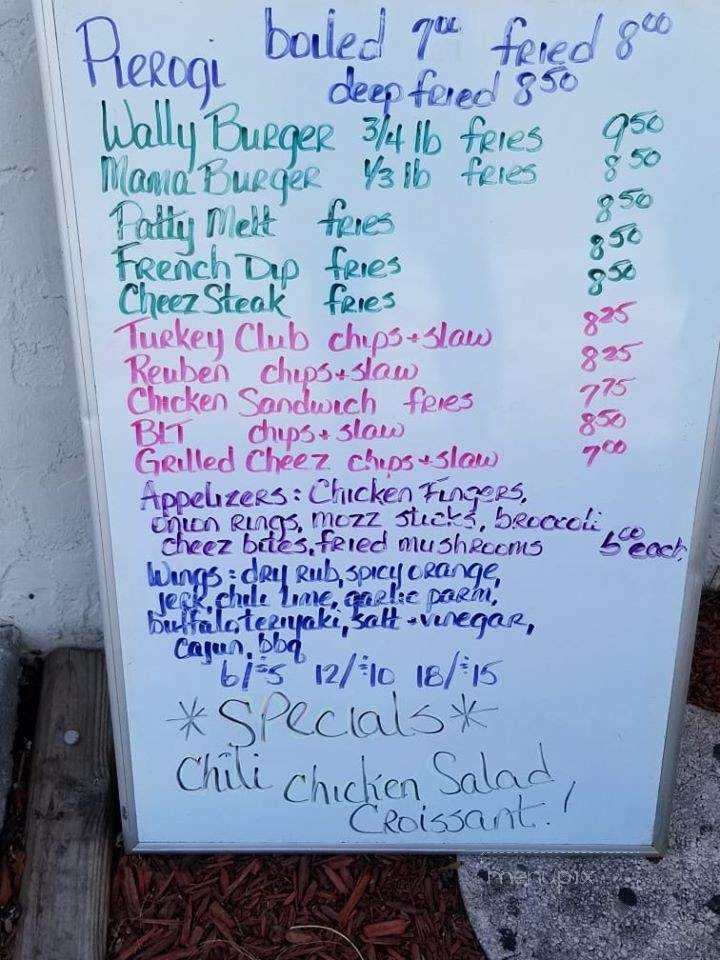 Pierogi boiled 7⁰⁰ fried 8⁰⁰
deep fried 8⁵⁰
Wally Burger 3/4 lb fries 9⁵⁰
Mama Burger 1/3 lb fries 8⁵⁰
Patty Melt fries 8⁵⁰
French Dip fries 8⁵⁰
Cheez Steak fries 8⁵⁰
Turkey Club chips + slaw 8²⁵
Reuben chips + slaw 8²⁵
Chicken Sandwich fries 7⁷⁵
BLT chips + slaw 8⁵⁰
Grilled Cheez chips + slaw 7⁰⁰
Appetizers: Chicken Fingers,
onion rings, mozz sticks, broccoli
cheez bites, fried mushrooms each
Wings: dry rub, spicy orange,
jerk, chili lime, garlic parm,
buffalo, teriyaki, salt + vinegar,
cajun, bbq
6/$5 12/$10 18/$15
*Specials*
Chili Chicken Salad
Croissant!
menupix